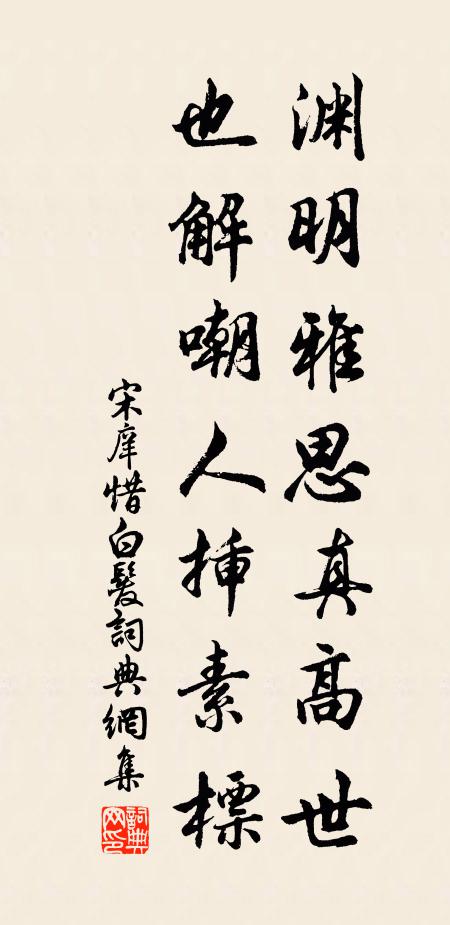 渊明雅思真高世
也解嘲人插素標
宋庠惜白髮詞典網集
詞典網印